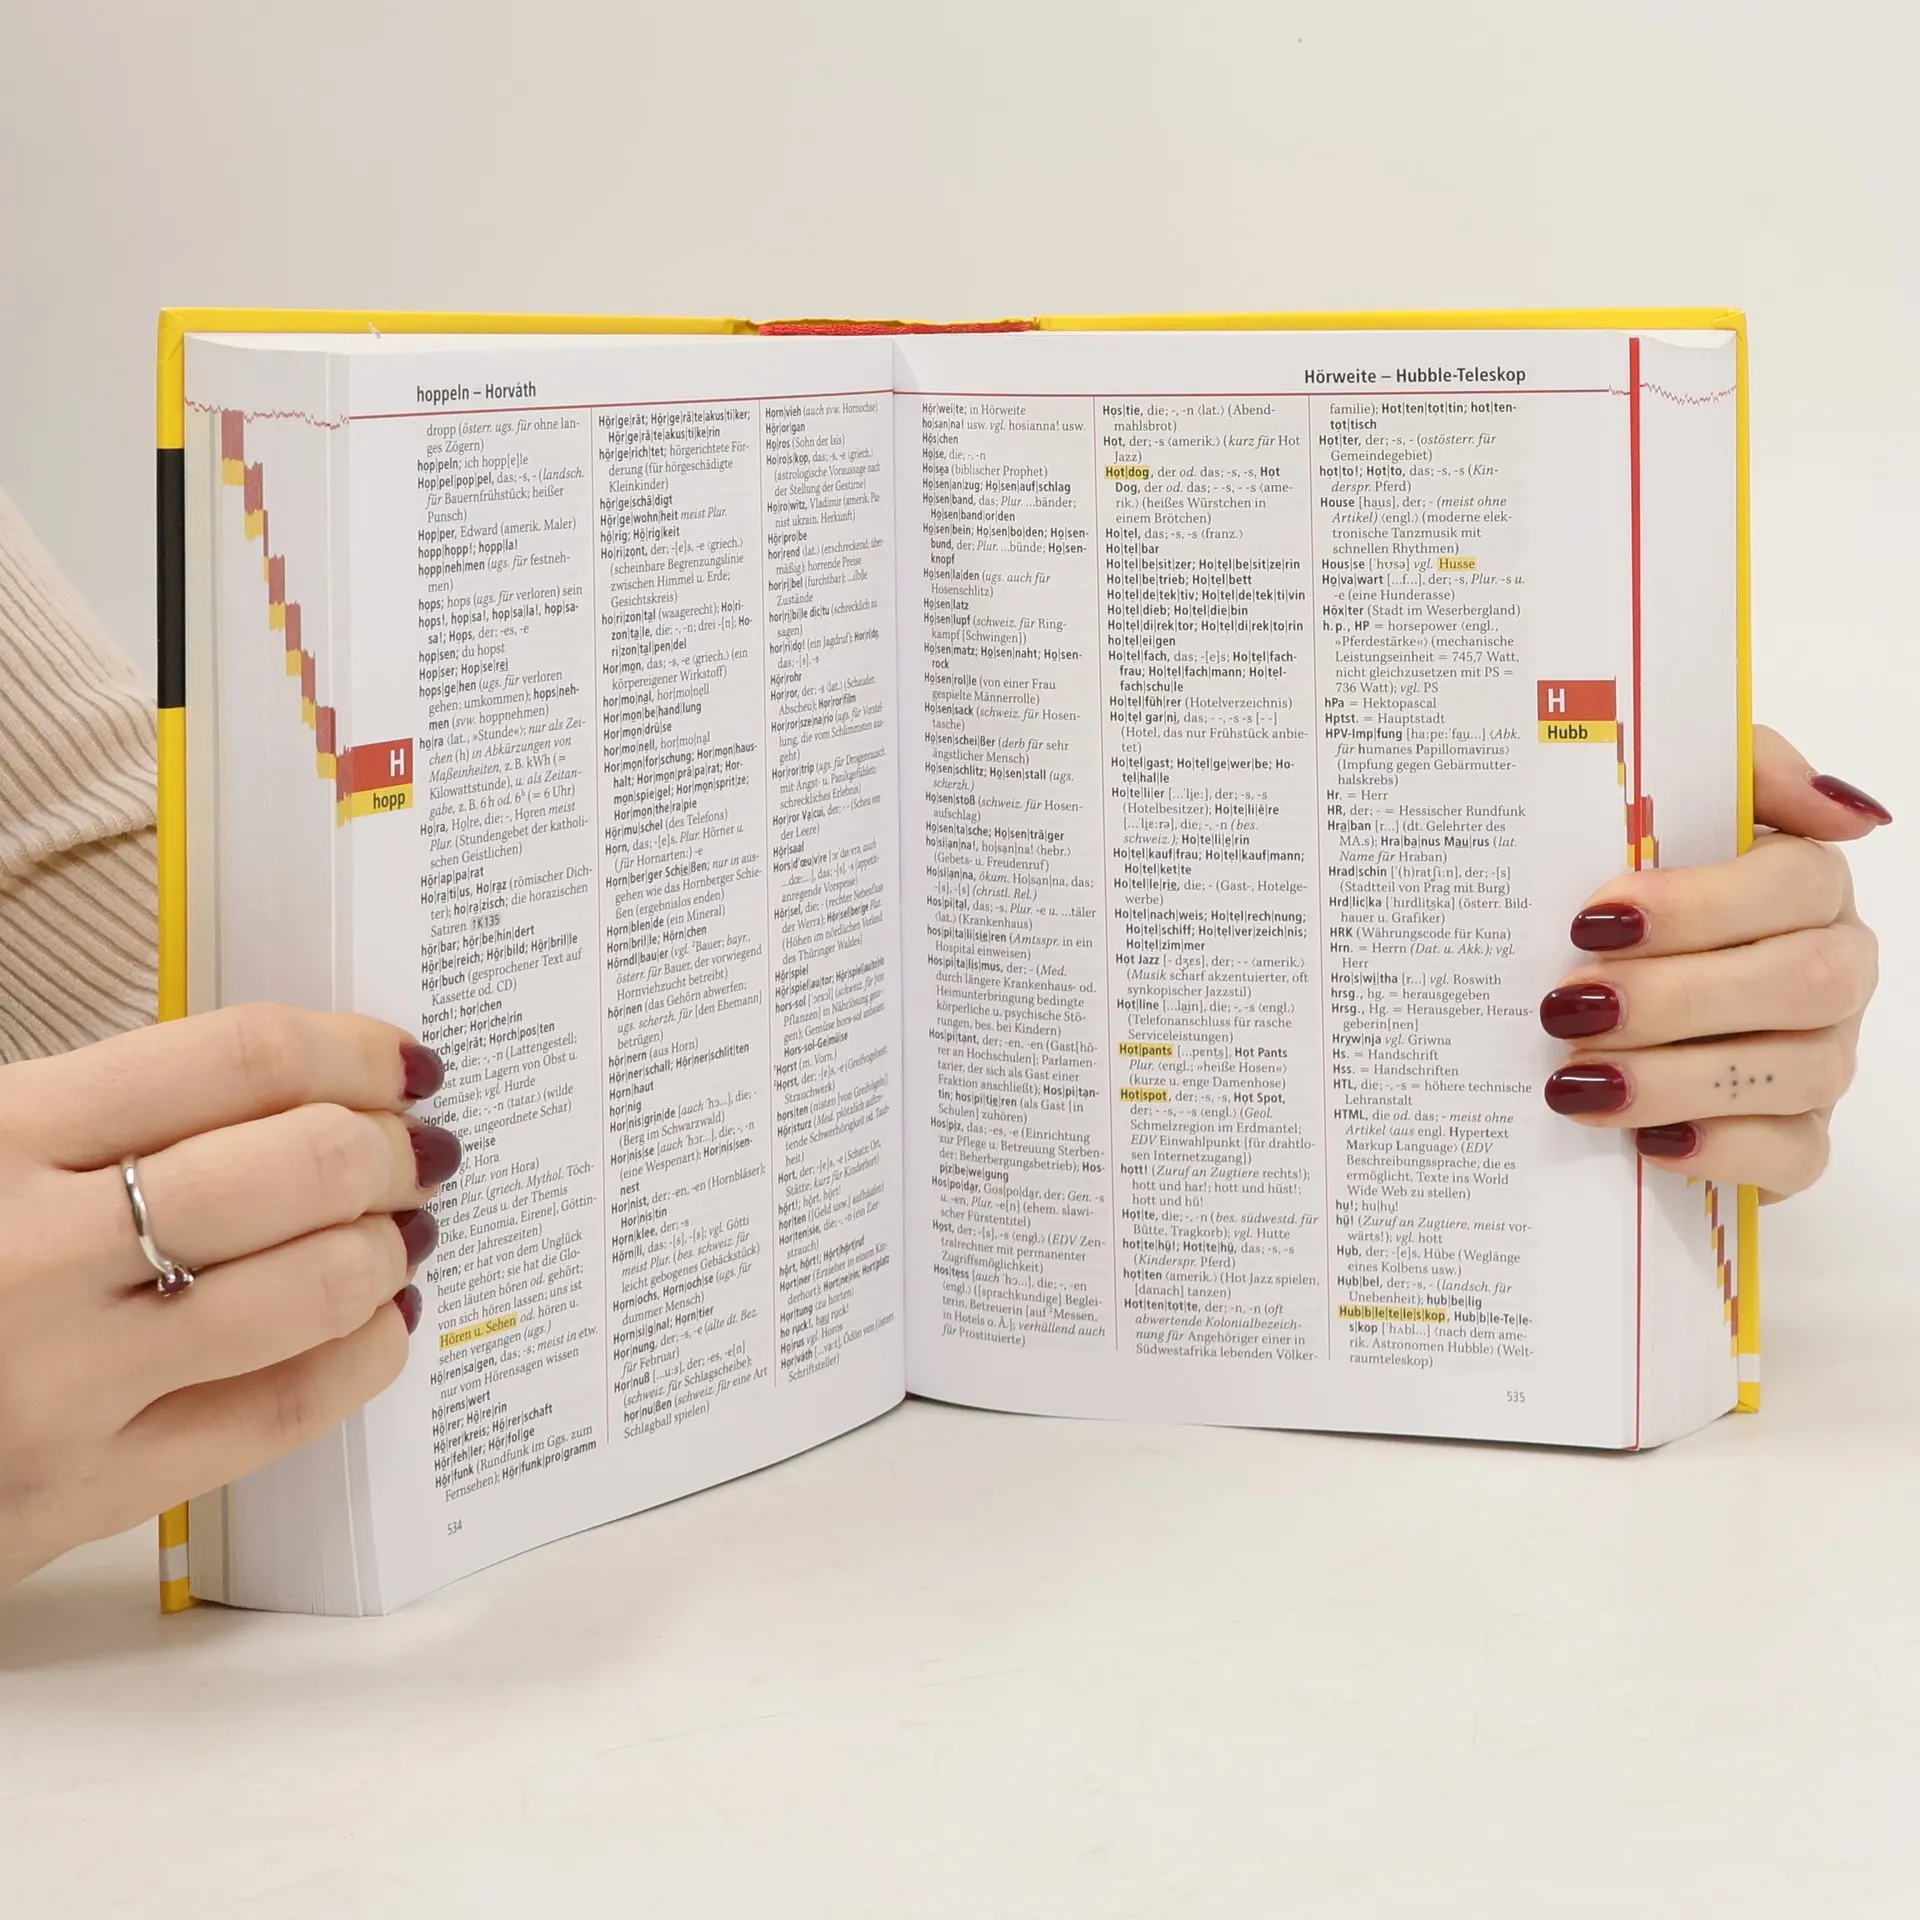 hoppeln – Horváth
dropp (österr. ugs. für ohne lan-
ges Zögern)
hop|peln; ich hopp[e]le
Hop|pel|pop|pel, das; -s, - (landsch.
für Bauernfrühstück; heißer
Punsch)
Hop|per, Edward (amerik. Maler)
hopp|hopp!; hopp|la!
hopp|neh|men (ugs. für festneh-
men)
hops; hops (ugs. für verloren) sein
hops!, hop|sa!, hop|sa|la!, hop|sa-
sa!; Hops, der; -es, -e
hop|sen; du hopst
Hop|ser; Hop|se|rei
hops|ge|hen (ugs. für verloren
gehen; umkommen); hops|neh-
men (svw. hoppnehmen)
ho|ra (lat., »Stunde«); nur als Zei-
chen (h) in Abkürzungen von
Maßeinheiten, z. B. kWh (=
Kilowattstunde), u. als Zeitan-
gabe, z. B. 6 h od. 6ʰ (= 6 Uhr)
Ho|ra, Ho|re, die; -, Horen meist
Plur. (Stundengebet der katholi-
schen Geistlichen)
Hör|ap|pa|rat
Ho|ra|ti|us, Ho|raz (römischer Dich-
ter); ho|ra|zisch; die horazischen
Satiren ↑K135
hör|bar; hör|be|hin|dert
Hör|be|reich; Hör|bild; Hör|bril|le
Hör|buch (gesprochener Text auf
Kassette od. CD)
horch!; hor|chen
Hor|cher; Hor|che|rin
rch|ge|rät; Horch|pos|ten
de, die; -, -n (Lattengestell;
ost zum Lagern von Obst u.
Gemüse); vgl. Hurde
Hor|de, die; -, -n (tatar.) (wilde
nge, ungeordnete Schar)
wei|se
gl. Hora
ren (Plur. von Hora)
Ho|ren Plur. (griech. Mythol. Töch-
ter des Zeus u. der Themis
[Dike, Eunomia, Eirene], Göttin-
nen der Jahreszeiten)
hö|ren; er hat von dem Unglück
heute gehört; sie hat die Glo-
cken läuten hören od. gehört;
von sich hören lassen; uns ist
Hören u. Sehen od. hören u.
sehen vergangen (ugs.)
Hö|ren|sa|gen, das; -s; meist in etw.
nur vom Hörensagen wissen
hö|rens|wert
Hö|rer; Hö|re|rin
Hö|rer|kreis; Hö|rer|schaft
Hör|feh|ler; Hör|fol|ge
Hör|funk (Rundfunk im Ggs. zum
Fernsehen); Hör|funk|pro|gramm
Hör|ge|rät; Hör|ge|rä|te|akus|ti|ker;
Hör|ge|rä|te|akus|ti|ke|rin
hör|ge|rich|tet; hörgerichtete För-
derung (für hörgeschädigte
Kleinkinder)
hör|ge|schä|digt
Hör|ge|wohn|heit meist Plur.
hö|rig; Hö|rig|keit
Ho|ri|zont, der; -[e]s, -e (griech.)
(scheinbare Begrenzungslinie
zwischen Himmel u. Erde;
Gesichtskreis)
ho|ri|zon|tal (waagerecht); Ho|ri-
zon|ta|le, die; -, -n; drei -[n]; Ho-
ri|zon|tal|pen|del
Hor|mon, das; -s, -e (griech.) (ein
körpereigener Wirkstoff)
hor|mo|nal, hor|mo|nell
Hor|mon|be|hand|lung
Hor|mon|drü|se
hor|mo|nell, hor|mo|nal
Hor|mon|for|schung; Hor|mon|haus-
halt; Hor|mon|prä|pa|rat; Hor-
mon|spie|gel; Hor|mon|sprit|ze;
Hor|mon|the|ra|pie
Hör|mu|schel (des Telefons)
Horn, das; -[e]s, Plur. Hörner u.
(für Hornarten:) -e
Horn|ber|ger Schie|ßen; nur in aus-
gehen wie das Hornberger Schie-
ßen (ergebnislos enden)
Horn|blen|de (ein Mineral)
Horn|bril|le; Hörn|chen
Hörndl|bau|er (vgl. ²Bauer; bayr.,
österr. für Bauer, der vorwiegend
Hornviehzucht betreibt)
hör|nen (das Gehörn abwerfen;
ugs. scherzh. für [den Ehemann]
betrügen)
hör|nern (aus Horn)
Hör|ner|schall; Hör|ner|schlit|ten
Horn|haut
hor|nig
Hor|nis|grin|de [auch ˈhɔ...], die; -
(Berg im Schwarzwald)
Hor|nis|se [auch ˈhɔr...], die; -, -n
(eine Wespenart); Hor|nis|sen-
nest
Hor|nist, der; -en, -en (Hornbläser);
Hor|nis|tin
Horn|klee, der; -s
Hörn|li, das; -[s], -[s]; vgl. Götti
meist Plur. (bes. schweiz. für
leicht gebogenes Gebäckstück)
Horn|ochs, Horn|och|se (ugs. für
dummer Mensch)
Horn|si|g|nal; Horn|tier
Hor|nung, der; -s, -e (alte dt. Bez.
für Februar)
Hor|nuß [...uːs], der; -es, -e[n]
(schweiz. für Schlagscheibe);
hor|nu|ßen (schweiz. für eine Art
Schlagball spielen)
Horn|vieh (auch svw. Hornochse)
Hör|or|gan
Ho|ros (Sohn der Isis)
Ho|ro|s|kop, das; -s, -e (griech.)
(astrologische Voraussage nach
der Stellung der Gestirne)
Ho|ro|witz, Vladimir (amerik. Pia-
nist ukrain. Herkunft)
Hör|pro|be
hor|rend (lat.) (erschreckend; über-
mäßig); horrende Preise
hor|ri|bel (furchtbar); ...i|b|le
Zustände
hor|ri|bi|le dic|tu (schrecklich zu
sagen)
hor|ri|do! (ein Jagdruf); Hor|ri|do,
das; -[s], -s
Hör|rohr
Hor|ror, der; -s (lat.) (Schauder,
Abscheu); Hor|ror|film
Hor|ror|sze|na|rio (ugs. für Vorstel-
lung, die vom Schlimmsten aus-
geht)
Hor|ror|trip (ugs. für Drogenrausch
mit Angst- u. Panikgefühlen;
schreckliches Erlebnis)
Hor|ror Va|cui, der; - - (Scheu vor
der Leere)
Hör|saal
anregende Vorspeise)
Hör|sel, die; - (rechter Nebenfluss
der Werra); Hör|sel|ber|ge Plur.
(Höhen im nördlichen Vorland
des Thüringer Waldes)
Hör|spiel
Hör|spiel|au|tor; Hör|spiel|au|to|rin
Hors-sol-Ge|mü|se
¹Horst (m. Vorn.)
²Horst, der; -[e]s, -e (Greifvogelnest;
Strauchwerk)
hors|ten (nisten [von Greifvögeln])
Hör|sturz (Med. plötzlich auftre-
tende Schwerhörigkeit od. Taub-
heit)
Hort, der; -[e]s, -e (Schatz; Ort,
Stätte; kurz für Kinderhort)
hört!; hört, hört!
hor|ten ([Geld usw.] aufhäufen)
Hor|ten|sie, die; -, -n (ein Zier-
strauch)
hört, hört!; Hört|hört|ruf
Hort|ner (Erzieher in einem Kin-
derhort); Hort|ne|rin; Hort|platz
Hor|tung (zu horten)
ho ruck!, hau ruck!
Ho|rus vgl. Horos
Hor|váth [...vaːt], Ödön von (österr.
Schriftsteller)
H
hopp
534
Hörweite – Hubble-Teleskop
Hör|wei|te; in Hörweite
ho|san|na! usw. vgl. hosianna! usw.
Hös|chen
Ho|se, die; -, -n
Ho|sea (biblischer Prophet)
Ho|sen|an|zug; Ho|sen|auf|schlag
Ho|sen|band, das; Plur. ...bänder;
Ho|sen|band|or|den
Ho|sen|bein; Ho|sen|bo|den; Ho|sen-
bund, der; Plur. ...bünde; Ho|sen-
knopf
Ho|sen|la|den (ugs. auch für
Hosenschlitz)
Ho|sen|latz
Ho|sen|lupf (schweiz. für Ring-
kampf [Schwingen])
Ho|sen|matz; Ho|sen|naht; Ho|sen-
rock
Ho|sen|rol|le (von einer Frau
gespielte Männerrolle)
Ho|sen|sack (schweiz. für Hosen-
tasche)
Ho|sen|schei|ßer (derb für sehr
ängstlicher Mensch)
Ho|sen|schlitz; Ho|sen|stall (ugs.
scherzh.)
Ho|sen|stoß (schweiz. für Hosen-
aufschlag)
Ho|sen|ta|sche; Ho|sen|trä|ger
ho|si|an|na!, ho|san|na! (hebr.)
(Gebets- u. Freudenruf)
Ho|si|an|na, ökum. Ho|san|na, das;
-[s], -[s] (christl. Rel.)
Hos|pi|tal, das; -s, Plur. -e u. ...täler
(lat.) (Krankenhaus)
hos|pi|ta|li|sie|ren (Amtsspr. in ein
Hospital einweisen)
Hos|pi|ta|lis|mus, der; - (Med.
durch längere Krankenhaus- od.
Heimunterbringung bedingte
körperliche u. psychische Stö-
rungen, bes. bei Kindern)
Hos|pi|tant, der; -en, -en (Gast[hö-
rer an Hochschulen]; Parlamen-
tarier, der sich als Gast einer
Fraktion anschließt); Hos|pi|tan-
tin; hos|pi|tie|ren (als Gast [in
Schulen] zuhören)
Hos|piz, das; -es, -e (Einrichtung
zur Pflege u. Betreuung Sterben-
der; Beherbergungsbetrieb); Hos-
piz|be|we|gung
Hos|po|dar, Gos|po|dar, der; Gen. -s
u. -en, Plur. -e[n] (ehem. slawi-
scher Fürstentitel)
Host, der; -[s], -s (engl.) (EDV Zen-
tralrechner mit permanenter
Zugriffsmöglichkeit)
Hos|tess [auch ˈhɔ...], die; -, -en
(engl.) ([sprachkundige] Beglei-
terin, Betreuerin [auf ²Messen,
in Hotels o. Ä.]; verhüllend auch
für Prostituierte)
Hos|tie, die; -, -n (lat.) (Abend-
mahlsbrot)
Hot, der; -s (amerik.) (kurz für Hot
Jazz)
Hot|dog, der od. das; -s, -s, Hot
Dog, der od. das; - -s, - -s (ame-
rik.) (heißes Würstchen in
einem Brötchen)
Ho|tel, das; -s, -s (franz.)
Ho|tel|bar
Ho|tel|be|sit|zer; Ho|tel|be|sit|ze|rin
Ho|tel|be|trieb; Ho|tel|bett
Ho|tel|de|tek|tiv; Ho|tel|de|tek|ti|vin
Ho|tel|dieb; Ho|tel|die|bin
Ho|tel|di|rek|tor; Ho|tel|di|rek|to|rin
ho|tel|ei|gen
Ho|tel|fach, das; -[e]s; Ho|tel|fach-
frau; Ho|tel|fach|mann; Ho|tel-
fach|schu|le
Ho|tel|füh|rer (Hotelverzeichnis)
Ho|tel gar|ni, das; - -, -s -s [- -]
(Hotel, das nur Frühstück anbie-
tet)
Ho|tel|gast; Ho|tel|ge|wer|be; Ho-
tel|hal|le
Ho|te|li|er [...ˈli̯eː], der; -s, -s
(Hotelbesitzer); Ho|te|li|è|re
[...ˈli̯eːrə], die; -, -n (bes.
schweiz.); Ho|te|li|e|rin
Ho|tel|kauf|frau; Ho|tel|kauf|mann;
Ho|tel|ket|te
Ho|tel|le|rie, die; - (Gast-, Hotelge-
werbe)
Ho|tel|nach|weis; Ho|tel|rech|nung;
Ho|tel|schiff; Ho|tel|ver|zeich|nis;
Ho|tel|zim|mer
Hot Jazz [- dʒɛs], der; - - (amerik.)
(Musik scharf akzentuierter, oft
synkopischer Jazzstil)
Hot|line [...lai̯n], die; -, -s (engl.)
(Telefonanschluss für rasche
Serviceleistungen)
Hot|pants [...pɛnts], Hot Pants
Plur. (engl.; »heiße Hosen«)
(kurze u. enge Damenhose)
Hot|spot, der; -s, -s, Hot Spot,
der; - -s, - -s (engl.) (Geol.
Schmelzregion im Erdmantel;
EDV Einwahlpunkt [für drahtlo-
sen Internetzugang])
hott! (Zuruf an Zugtiere rechts!);
hott und har!; hott und hüst!;
hott und hü!
Hot|te, die; -, -n (bes. südwestd. für
Bütte, Tragkorb); vgl. Hutte
hot|te|hü!; Hot|te|hü, das; -s, -s
(Kinderspr. Pferd)
hot|ten (amerik.) (Hot Jazz spielen,
[danach] tanzen)
Hot|ten|tot|te, der; -n, -n (oft
abwertende Kolonialbezeich-
nung für Angehöriger einer in
Südwestafrika lebenden Völker-
familie); Hot|ten|tot|tin; hot|ten-
tot|tisch
Hot|ter, der; -s, - (ostösterr. für
Gemeindegebiet)
hot|to!; Hot|to, das; -s, -s (Kin-
derspr. Pferd)
House [hau̯s], der; - (meist ohne
Artikel) (engl.) (moderne elek-
tronische Tanzmusik mit
schnellen Rhythmen)
Hous|se [ˈhʊsə] vgl. Husse
Ho|va|wart [...f...], der; -s, Plur. -s u.
-e (eine Hunderasse)
Höx|ter (Stadt im Weserbergland)
h. p., HP = horsepower (engl.,
»Pferdestärke«) (mechanische
Leistungseinheit = 745,7 Watt,
nicht gleichzusetzen mit PS =
736 Watt); vgl. PS
hPa = Hektopascal
Hptst. = Hauptstadt
HPV-Imp|fung [haːpeːˈfau̯...] (Abk.
für humanes Papillomavirus)
(Impfung gegen Gebärmutter-
halskrebs)
Hr. = Herr
HR, der; - = Hessischer Rundfunk
Hra|ban [r...] (dt. Gelehrter des
MA.s); Hra|ba|nus Mau|rus (lat.
Name für Hraban)
Hrad|schin [ˈ(h)ratʃiːn], der; -[s]
(Stadtteil von Prag mit Burg)
Hrd|lic|ka [ˈhɪrdlɪtʃka] (österr. Bild-
hauer u. Grafiker)
HRK (Währungscode für Kuna)
Hrn. = Herrn (Dat. u. Akk.); vgl.
Herr
Hro|s|wi|tha [r...] vgl. Roswith
hrsg., hg. = herausgegeben
Hrsg., Hg. = Herausgeber, Heraus-
geberin[nen]
Hryw|nja vgl. Griwna
Hs. = Handschrift
Hss. = Handschriften
HTL, die; -, -s = höhere technische
Lehranstalt
HTML, die od. das; - meist ohne
Artikel (aus engl. Hypertext
Markup Language) (EDV
Beschreibungssprache, die es
ermöglicht, Texte ins World
Wide Web zu stellen)
hu!; hu|hu!
hü! (Zuruf an Zugtiere, meist vor-
wärts!); vgl. hott
Hub, der; -[e]s, Hübe (Weglänge
eines Kolbens usw.)
Hub|bel, der; -s, - (landsch. für
Unebenheit); hub|be|lig
Hub|b|le|te|le|s|kop, Hub|b|le-Te|le-
s|kop [ˈhabl...] (nach dem ame-
rik. Astronomen Hubble) (Welt-
raumteleskop)
H
Hubb
535